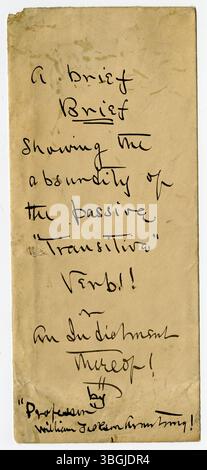 A brief
Brief
Showing the
absurdity of
the passive
"Transitive"
Verb!!
an Indictment
thereof!
by
"Professor"
William Jackson Armstrong!
alamy
Image ID: 3BGJDR4
www.alamy.com